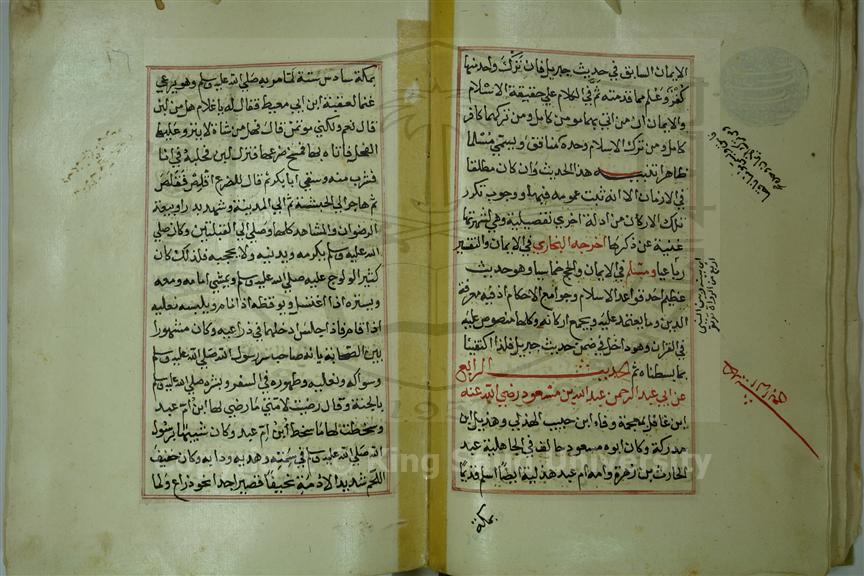 الايمان السابق في حديث جبريل فان ترك واحد منها
كفر وعلم مما قدمته ثم في الكلام على حقيقة الاسلام
والايمان ان من اتى بهما مومن كامل ومن تركهما كافر
كامل ومن ترك الاسلام وحده كمنافق ويسمى مسلما
ظاهرا تنبيه هذا الحديث وان كان مطلقا
في الازمان الا انه ثبت عمومه فيها ووجوب تكرر
تلك الاركان من ادلة اخرى تفصيلية وهي لشهرتها
غنية عن ذكرها اخرجه البخاري في الايمان والتفسير
رباعيا ومسلم في الايمان والحج خماسيا وهو حديث
عظيم احد قواعد الاسلام وجوامع الاحكام اذ فيه معرفة
الدين وما يعتمد عليه ويجمع اركانه وكلها منصوص عليه
في القران وهو داخل في ضمن حديث جبريل فلذا اكتفينا
بما بسطناه ثم الحديث الرابع
عن ابي عبد الرحمن عبد الله بن مسعود رضي الله عنه
ابن غافل بمعجمة وفاء ابن حبيب الهذلي وهذيل ابن
مدركة وكان ابوه مسعود حالف في الجاهلية عبد
الحارث بن زهرة وامه ام عبد هذلية ايضا اسلم قديما
بمكة
بمكة سادس ستة لما مر به صلى الله عليه وسلم وهو يرعى
غنما لعقبة ابن ابي معيط فقال له يا غلام هل من لبن
قال نعم ولكني موتمن قال فهل من شاة لا ينزو عليها
الفحل فاتاه بها فمسح ضرعها فنزل لبن فحلبه في انا
فشرب منه وسقى ابا بكر ثم قال للضرع اقلص فقلص
ثم هاجر الى الحبشة ثم الى المدينة وشهد بدرا وبيعة
الرضوان والمشاهد كلها وصلى الى القبلتين وكان صلى
الله عليه وسلم يكرمه ويدنيه ولا يحجبه فلذلك كان
كثير الولوج عليه صلى الله عليه وسلم ويمشي امامه ومعه
ويستره اذا اغتسل ويوقظه اذا نام ويلبسه نعليه
اذا قام فاذا جلس ادخلهما في ذراعيه وكان مشهورا
بين الصحابة بانه صاحب سر رسول الله صلى الله عليه وسلم
وسواكه ونعليه وطهوره في السفر وبشره صلى الله عليه وسلم
بالجنة وقال رضيت لامتي ما رضي لها ابن ام عبد
وسخطت لها ما سخط ابن ام عبد وكان شبيها برسول
الله صلى الله عليه وسلم في سمته وهديه ودله وكان خفيف
اللحم شديد الادمة نحيفا قصيرا جدا نحو ذراع ولما